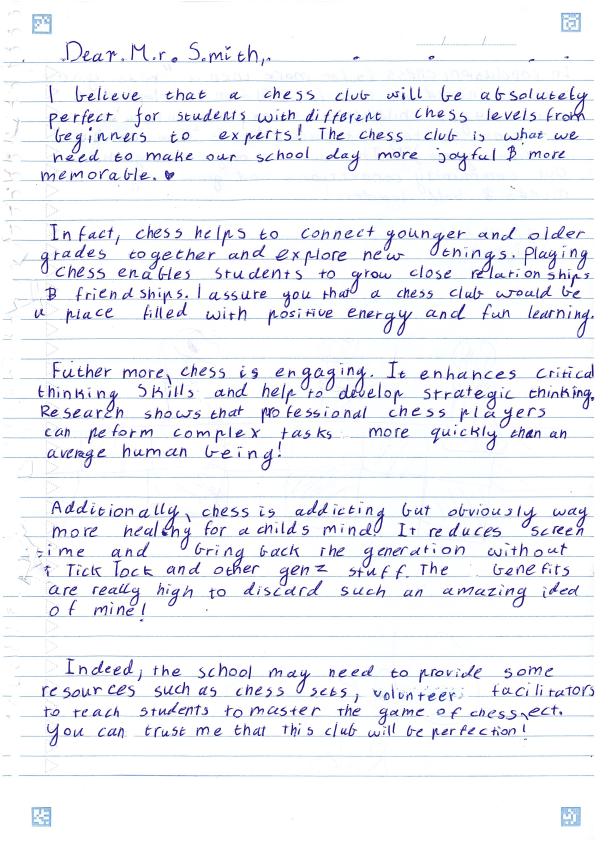 Dear. M.r. S.mith,.
I believe that a chess club will be absolutely
perfect for students with different chess levels from
beginners to experts! The chess club is what we
need to make our school day more joyful & more
memorable. ♥
In fact, chess helps to connect younger and older
grades together and explore new things. Playing
chess enables students to grow close relationships
& friendships. I assure you that a chess club would be
a place filled with positive energy and fun learning.
Futher more, chess is engaging. It enhances critical
thinking skills and help to develop strategic thinking.
Research shows that professional chess players
can peform complex tasks more quickly than an
average human being!
Additionally, chess is addicting but obviously way
more healthy for a childs mind! It reduces screen
time and bring back the generation without
Tick Tock and other gen z stuff. The benefits
are really high to discard such an amazing idea
of mine!
Indeed, the school may need to provide some
resources such as chess sets, volunteer facilitators
to teach students to master the game of chess, ect.
You can trust me that this club will be perfection!